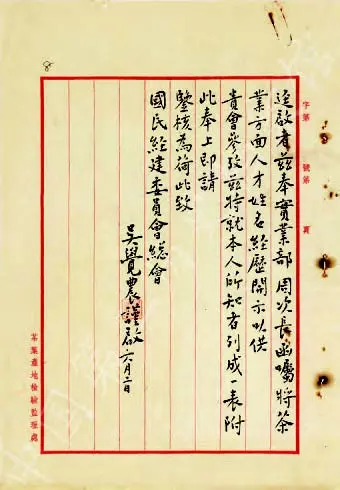 字第 號第 頁
逕啟者茲奉實業部周次長函囑將茶
業方面人才姓名經歷開示以供
貴會參攷茲特就本人所知者列成一表附
此奉上即請
鑒核為荷此致
國民經建委員會總會
吳覺農謹啟 六月二日
茶葉產地檢驗監理處
8